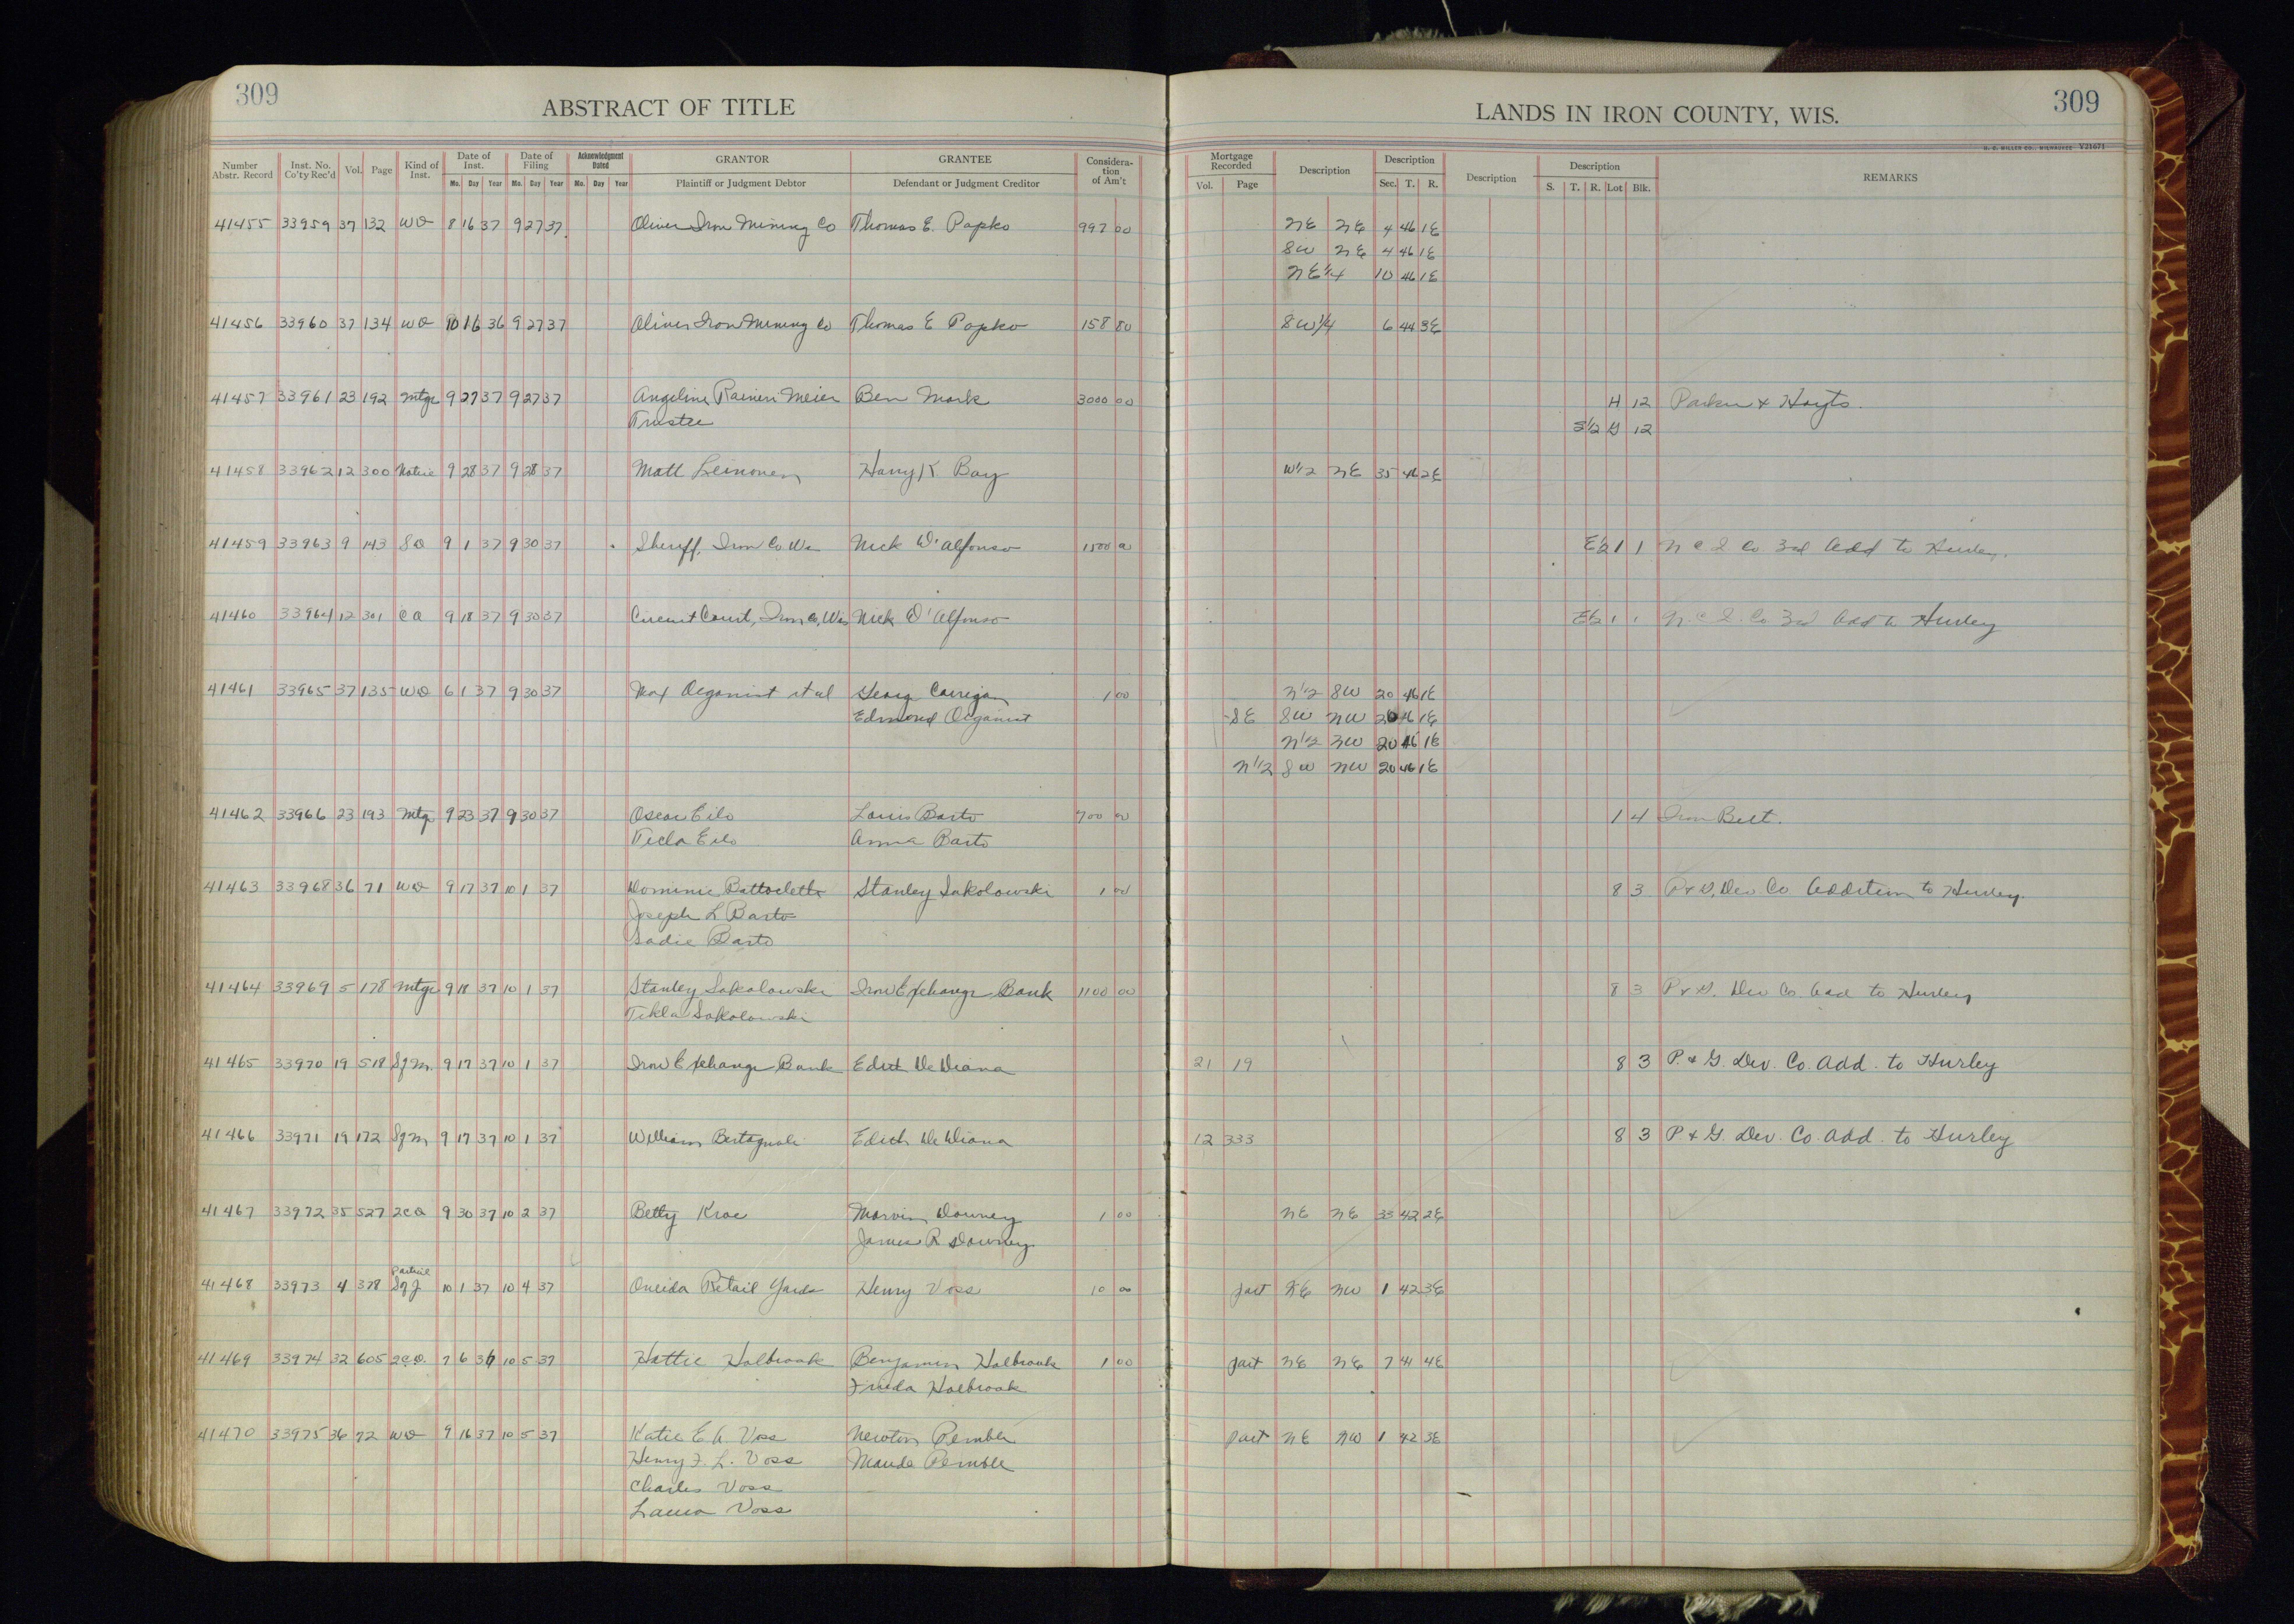 309
ABSTRACT OF TITLE
LANDS IN IRON COUNTY, WIS.
309
H. G. MILLER CO., MILWAUKEE Y21671
Number Abstr. Record Inst. No. Co'ty Rec'd Vol. Page Kind of Inst. Date of Inst. Mo. Day Year Date of Filing Mo. Day Year Acknowledgment Dated Mo. Day Year GRANTOR Plaintiff or Judgment Debtor GRANTEE Defendant or Judgment Creditor Considera-tion of Am't Mortgage Recorded Vol. Page Description Description Sec. T. R. Description Description S. T. R. Lot Blk. REMARKS
41455 33959 37 132 WD 8 16 37 9 27 37 Oliver Iron Mining Co Thomas E. Popko 997 00 NE NE 4 46 1E
SW NE 4 46 1E
NE 1/4 10 46 1E
41456 33960 37 134 WD 10 16 36 9 27 37 Oliver Iron Mining Co Thomas E Popko 158 80 SW 1/4 6 44 3E
41457 33961 23 192 Mtge 9 27 37 9 27 37 Angeline Raineri Meier Ben Mark 3000 00 H 12 Parker & Hoyts.
Trustee S1/2 G 12
41458 33962 12 300 Notice 9 28 37 9 28 37 Matt Leinonen Harry K Bay W1/2 NE 35 46 2E
41459 33963 9 143 SD 9 1 37 9 30 37 Sheriff, Iron Co Wis Nick D'Alfonso 1500 00 E1/2 1 1 N C I Co 3rd Add to Hurley.
41460 33964 12 301 CO 9 18 37 9 30 37 Circuit Court, Iron Co, Wis Nick D'Alfonso E1/2 1 1 N. C I. Co. 3rd Add to Hurley
41461 33965 37 135 WD 6 1 37 9 30 37 Max Organist et al Georg Corrigan 1 00 N1/2 SW 20 46 1E
Edmond Organist SE SW NW 20 46 1E
N1/2 NW 20 46 1E
N1/2 SW NW 20 46 1E
41462 33966 23 193 Mtge 9 23 37 9 30 37 Oscar Eilo Louis Barto 700 00 1 4 Iron Belt.
Tecla Eilo Anna Barto
41463 33968 36 71 WD 9 17 37 10 1 37 Dominic Stanley Sokolowski 1 00 8 3 P & G, Dev. Co Addition to Hurley.
Joseph L Barto
Sadie Barto
41464 33969 5 178 Mtge 9 18 37 10 1 37 Stanley Sokolowski Iron Exchange Bank 1100 00 8 3 P & G. Dev Co. Add to Hurley
Tekla Sokolowski
41465 33970 19 518 Sgm. 9 17 37 10 1 37 Iron Exchange Bank Edith DeDiana 21 19 8 3 P. & G. Dev. Co. Add. to Hurley
41466 33971 19 172 Sgm 9 17 37 10 1 37 William Bertagnoli Edith DeDiana 12 333 8 3 P. & G. Dev. Co. Add. to Hurley
41467 33972 35 527 2CD 9 30 37 10 2 37 Betty Kroc Marvin Downey 1 00 NE NE 33 42 2E
James R Downey.
Partial
41468 33973 4 378 SgJ 10 1 37 10 4 37 Oneida Retail Yards Henry Voss 10 00 part NE NW 1 42 3E
41469 33974 32 605 2CD. 7 6 36 10 5 37 Hattie Holbrook Benjamin Holbrook 1 00 part NE NE 7 41 4E
Frieda Holbrook
41470 33975 36 72 WD 9 16 37 10 5 37 Katie E A Voss Newton Pemble part NE NW 1 42 3E
Henry F. L. Voss Maude Pemble
Charles Voss
Laura Voss